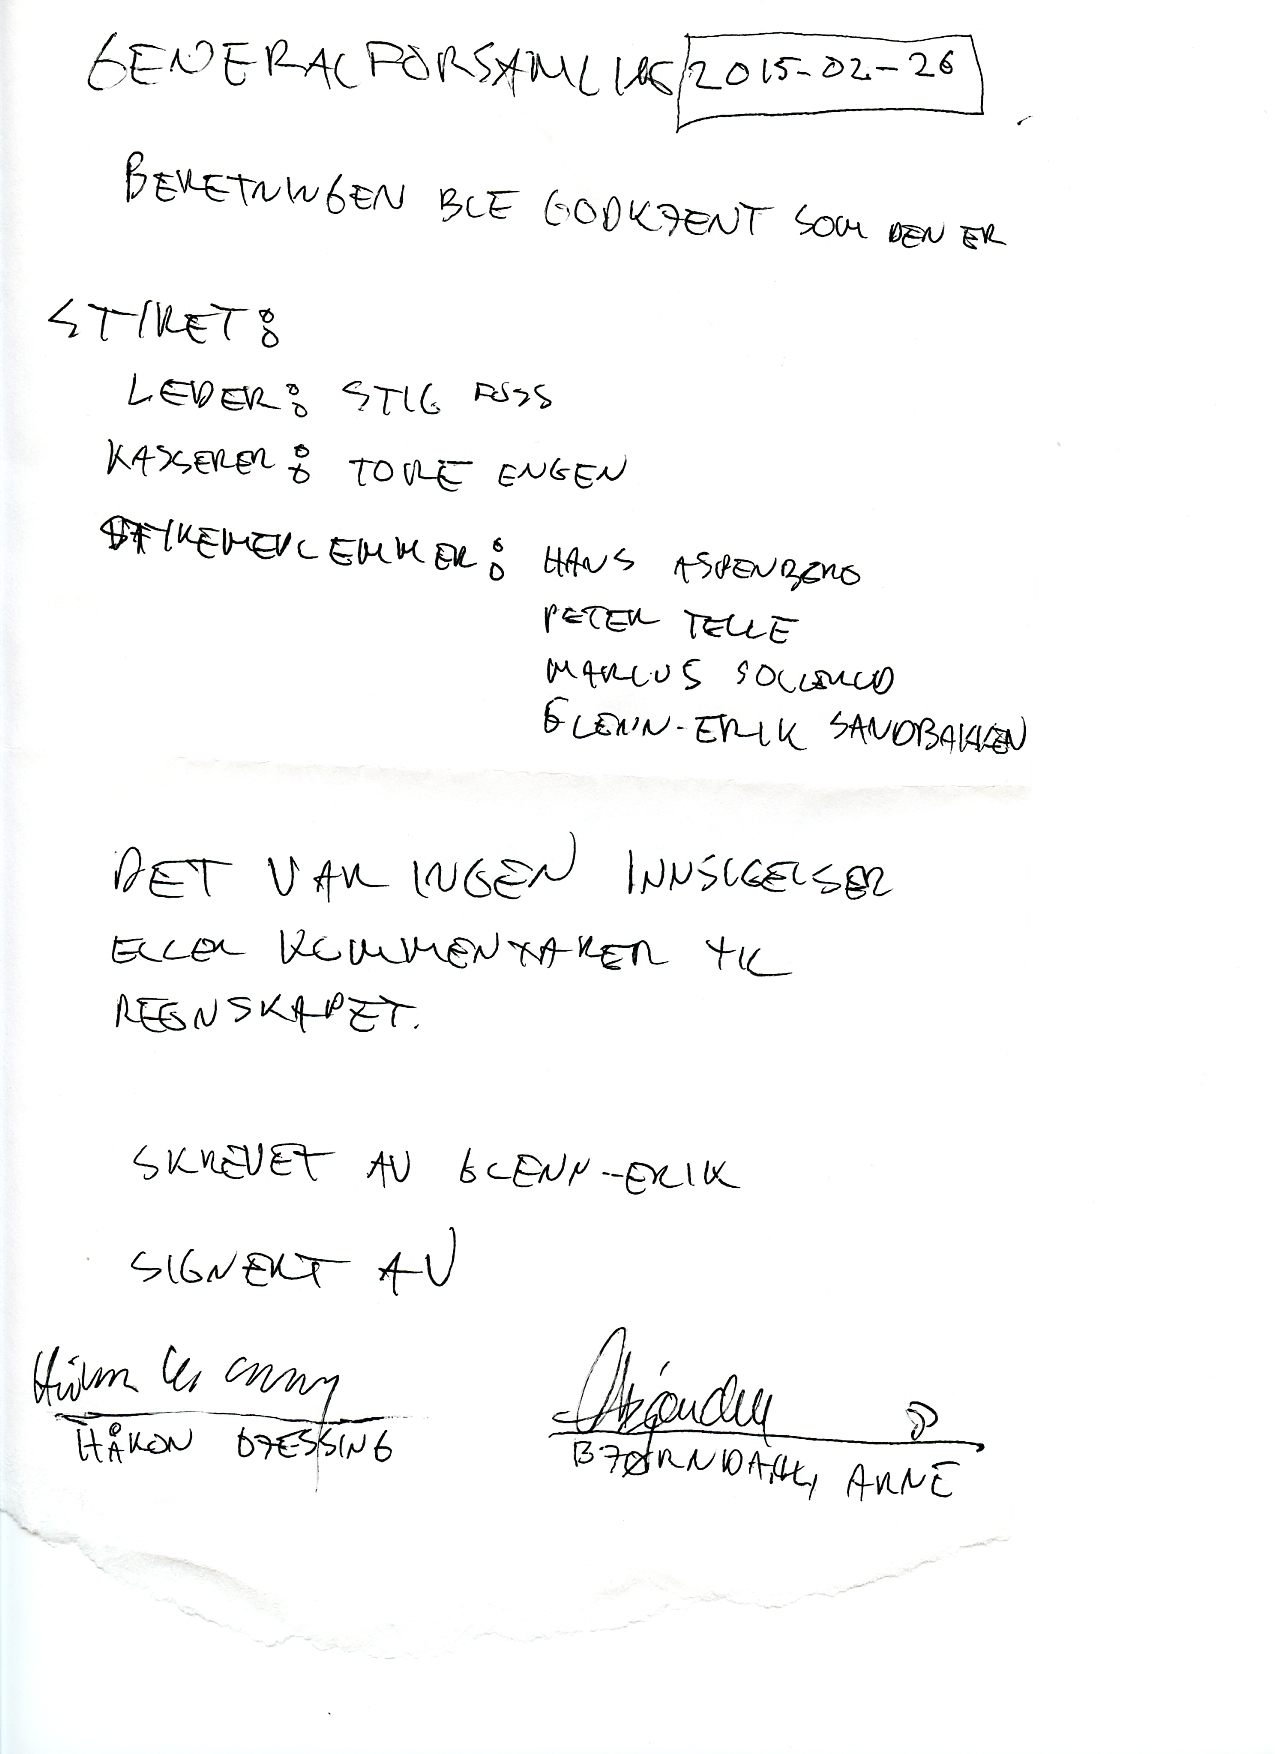 GENERALFORSAMLING 2015-02-26
BERETNINGEN BLE GODKJENT SOM DEN ER
STYRET:
LEDER: STIG FOSS
KASSERER: TORE ENGEN
STYREMEDLEMMER: HANS ASPENBERG
PETER TELLE
MARCUS
GLENN-ERIK SANDBAKKEN
DET VAR INGEN INNSIGELSER
ELLER KOMMENTARER TIL
REGNSKAPET.
SKREVET AV GLENN-ERIK
SIGNERT AV
HÅKON GJESSING
BJØRNDAHL, ARNE